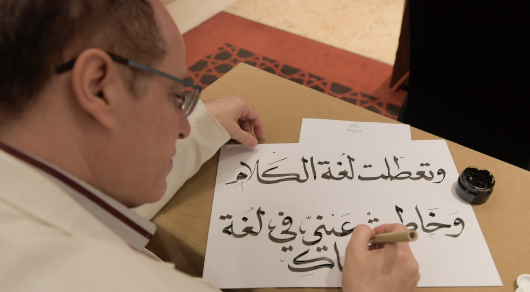 وتعطلت لغة الكلام
وخاطبت عيني في لغة